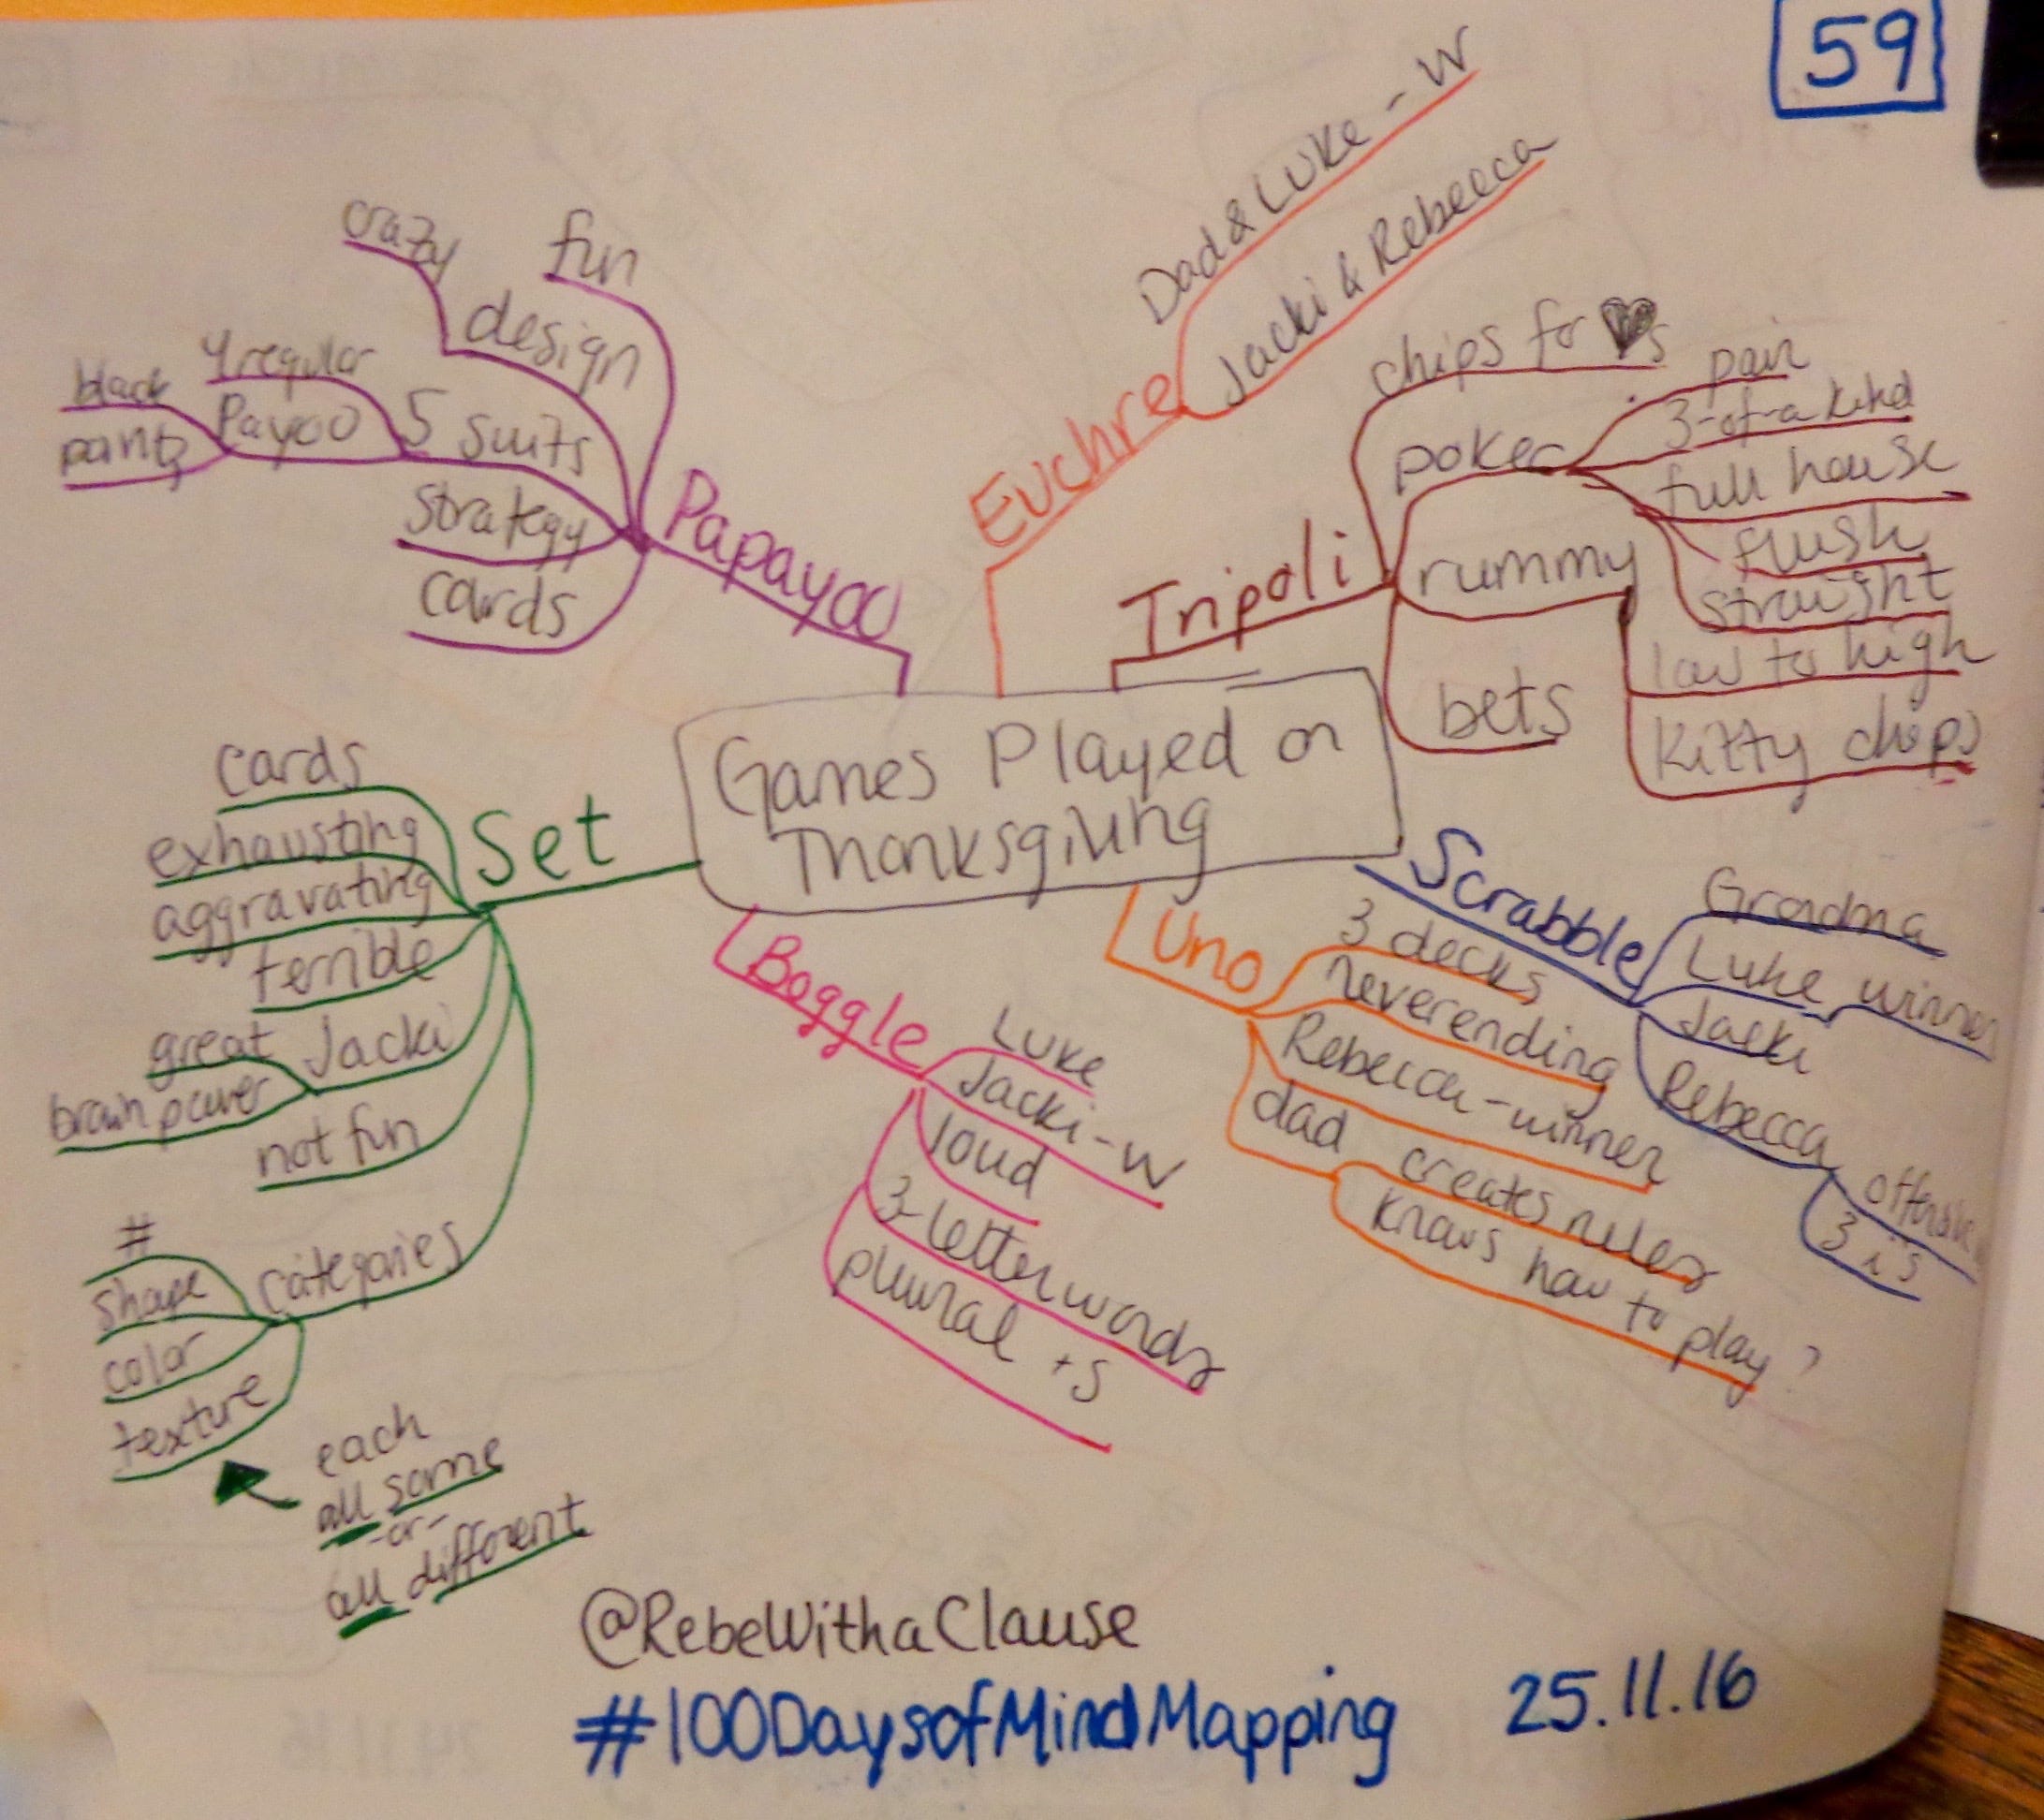 59
Games Played on
Thanksgiving
Papayoo
fun
design
crazy
5 suits
4 regular
Payoo
black
strategy
cards
Euchre
Dad & Luke - W
Jacki & Rebecca
Tripoli
chips for ♥s
poker
pair
3-of-a kind
full house
flush
straight
rummy
low to high
Kitty chips
bets
Scrabble
Grandma
Luke winner
Jacki
Rebecca
3 i's
Uno
3 decks
neverending
Rebecca - winner
dad
creates rules
knows how to play?
Boggle
Luke
Jacki - W
loud
3-letter words
plural +s
Set
cards
exhausting
aggravating
terrible
Jacki
great
brain power
not fun
categories
#
shape
color
texture
each
all same
-or-
all different
@RebeWithaClause
#100DaysofMindMapping
25.11.16